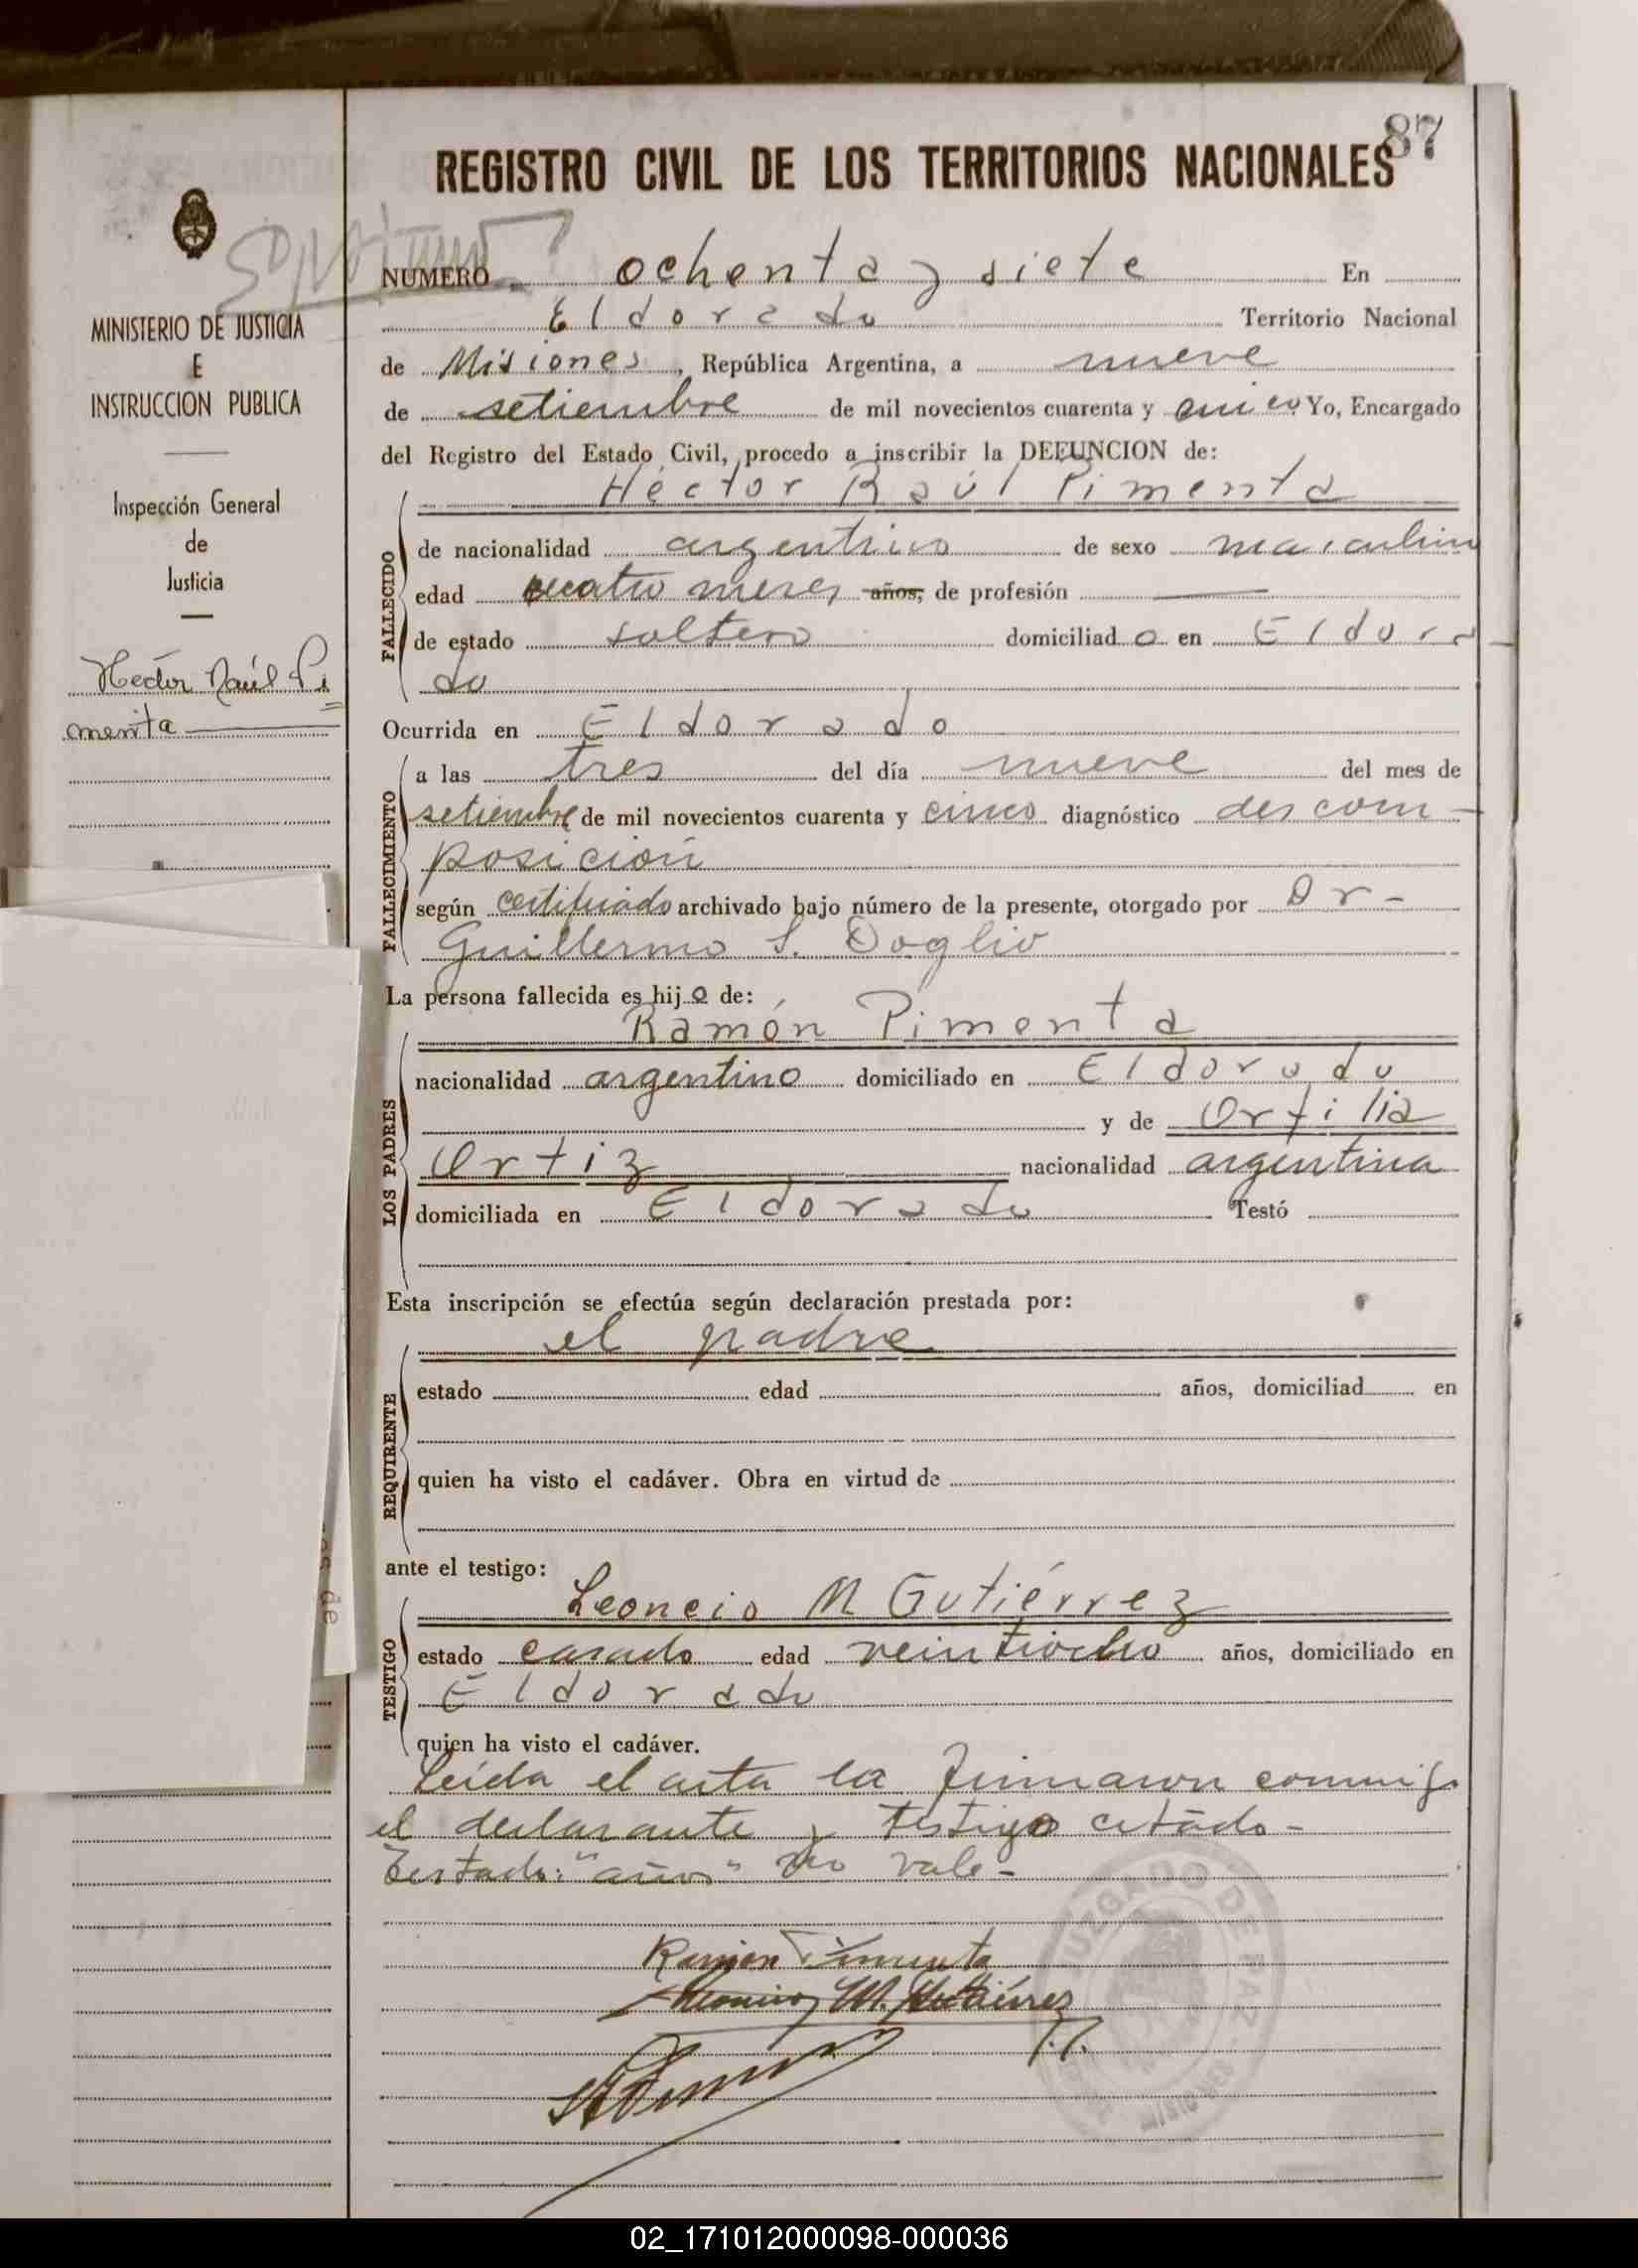 87
REGISTRO CIVIL DE LOS TERRITORIOS NACIONALES
NUMERO ochenta y siete En
Eldorado Territorio Nacional
de Misiones, República Argentina, a nueve
de setiembre de mil novecientos cuarenta y cinco Yo, Encargado
del Registro del Estado Civil, procedo a inscribir la DEFUNCION de:
Héctor Raúl Pimenta
FALLECIDO
de nacionalidad argentino de sexo masculino
edad cuatro meses años, de profesión —
de estado soltero domiciliado en Eldora
do
Ocurrida en Eldorado
FALLECIMIENTO
a las tres del día nueve del mes de
setiembre de mil novecientos cuarenta y cinco diagnóstico descom-
posición
según certificado archivado bajo número de la presente, otorgado por Dr-
Guillermo S. Doglio
La persona fallecida es hijo de:
Ramón Pimenta
LOS PADRES
nacionalidad argentino domiciliado en Eldorado
y de Ortilia
Ortiz nacionalidad argentina
domiciliada en Eldorado Testó
Esta inscripción se efectúa según declaración prestada por:
el padre
REQUIRENTE
estado edad años, domiciliad en
quien ha visto el cadáver. Obra en virtud de
ante el testigo:
Leoncio M Gutiérrez
TESTIGO
estado casado edad veintiocho años, domiciliado en
Eldorado
quien ha visto el cadáver.
Leída el acta la firmaron conmigo
el declarante y testigo citado-
Testado: "años" no vale-
Ramón Pimenta
Leoncio M. Gutiérrez
JUZGADO DE PAZ
MISIONES
MINISTERIO DE JUSTICIA
E
INSTRUCCION PUBLICA
Inspección General
de
Justicia
Héctor Raúl Pi
menta
02_171012000098-000036